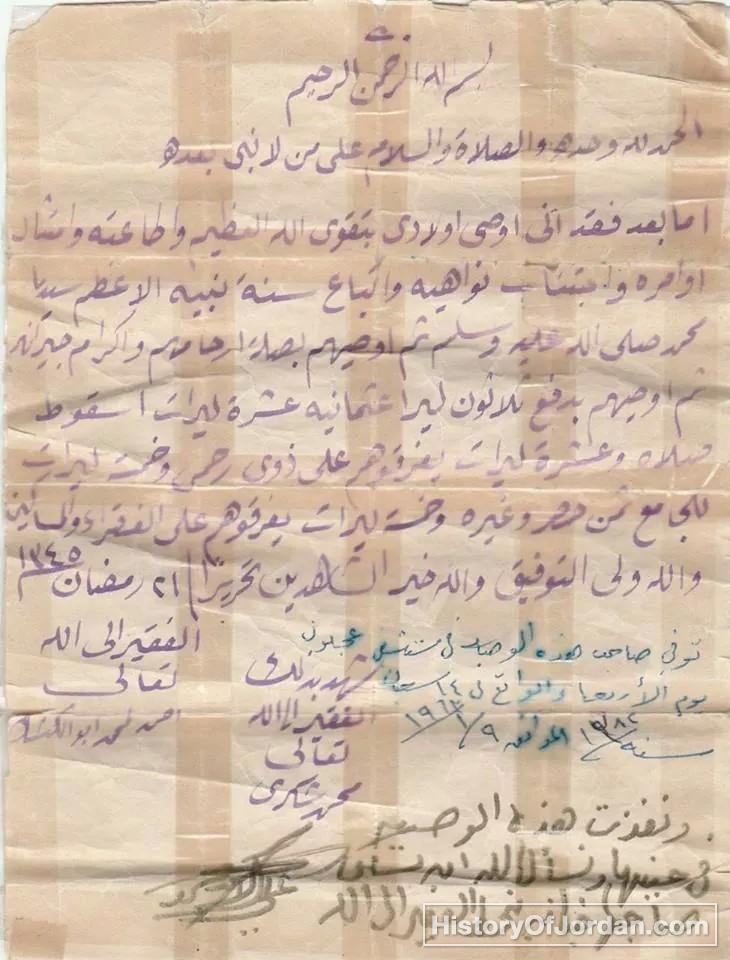 بسم الله الرحمن الرحيم
الحمد لله وحده والصلاة والسلام على من لا نبي بعده
اما بعد فقد اني اوصي اولادي بتقوى الله العظيم واطاعته وامتثال
اوامره واجتناب نواهيه واتباع سنة نبيه الاعظم سيدنا
محمد صلى الله عليه وسلم ثم اوصيهم بصلة ارحامهم واكرام جيرانهم
ثم اوصيهم بدفع ثلاثون ليرا عثمانيه عشرة ليرات اسقوط
صلاه وعشرة ليرات يفرقوهم على ذوي رحمي وخمسة ليرات
للجامع ثمن حصر وغيره وخمسة ليرات يفرقوهم على الفقراء والمساكين
والله ولي التوفيق والله خير الشاهدين تحريرا ٢١ رمضان ١٣٤٥
الفقير الى الله
تعالى
شهد بذلك
الفقير الى الله
تعالى
محمد شكري
توفي صاحب هذه الوصية في مستشفى عجلون
يوم الأربعاء والواقع في ١٤ شعبان
سنة ١٣٨٢ الموافق ٩
ونفذت هذه الوصية
في حينها ونسأل الله
الى الله
HistoryOfJordan.com